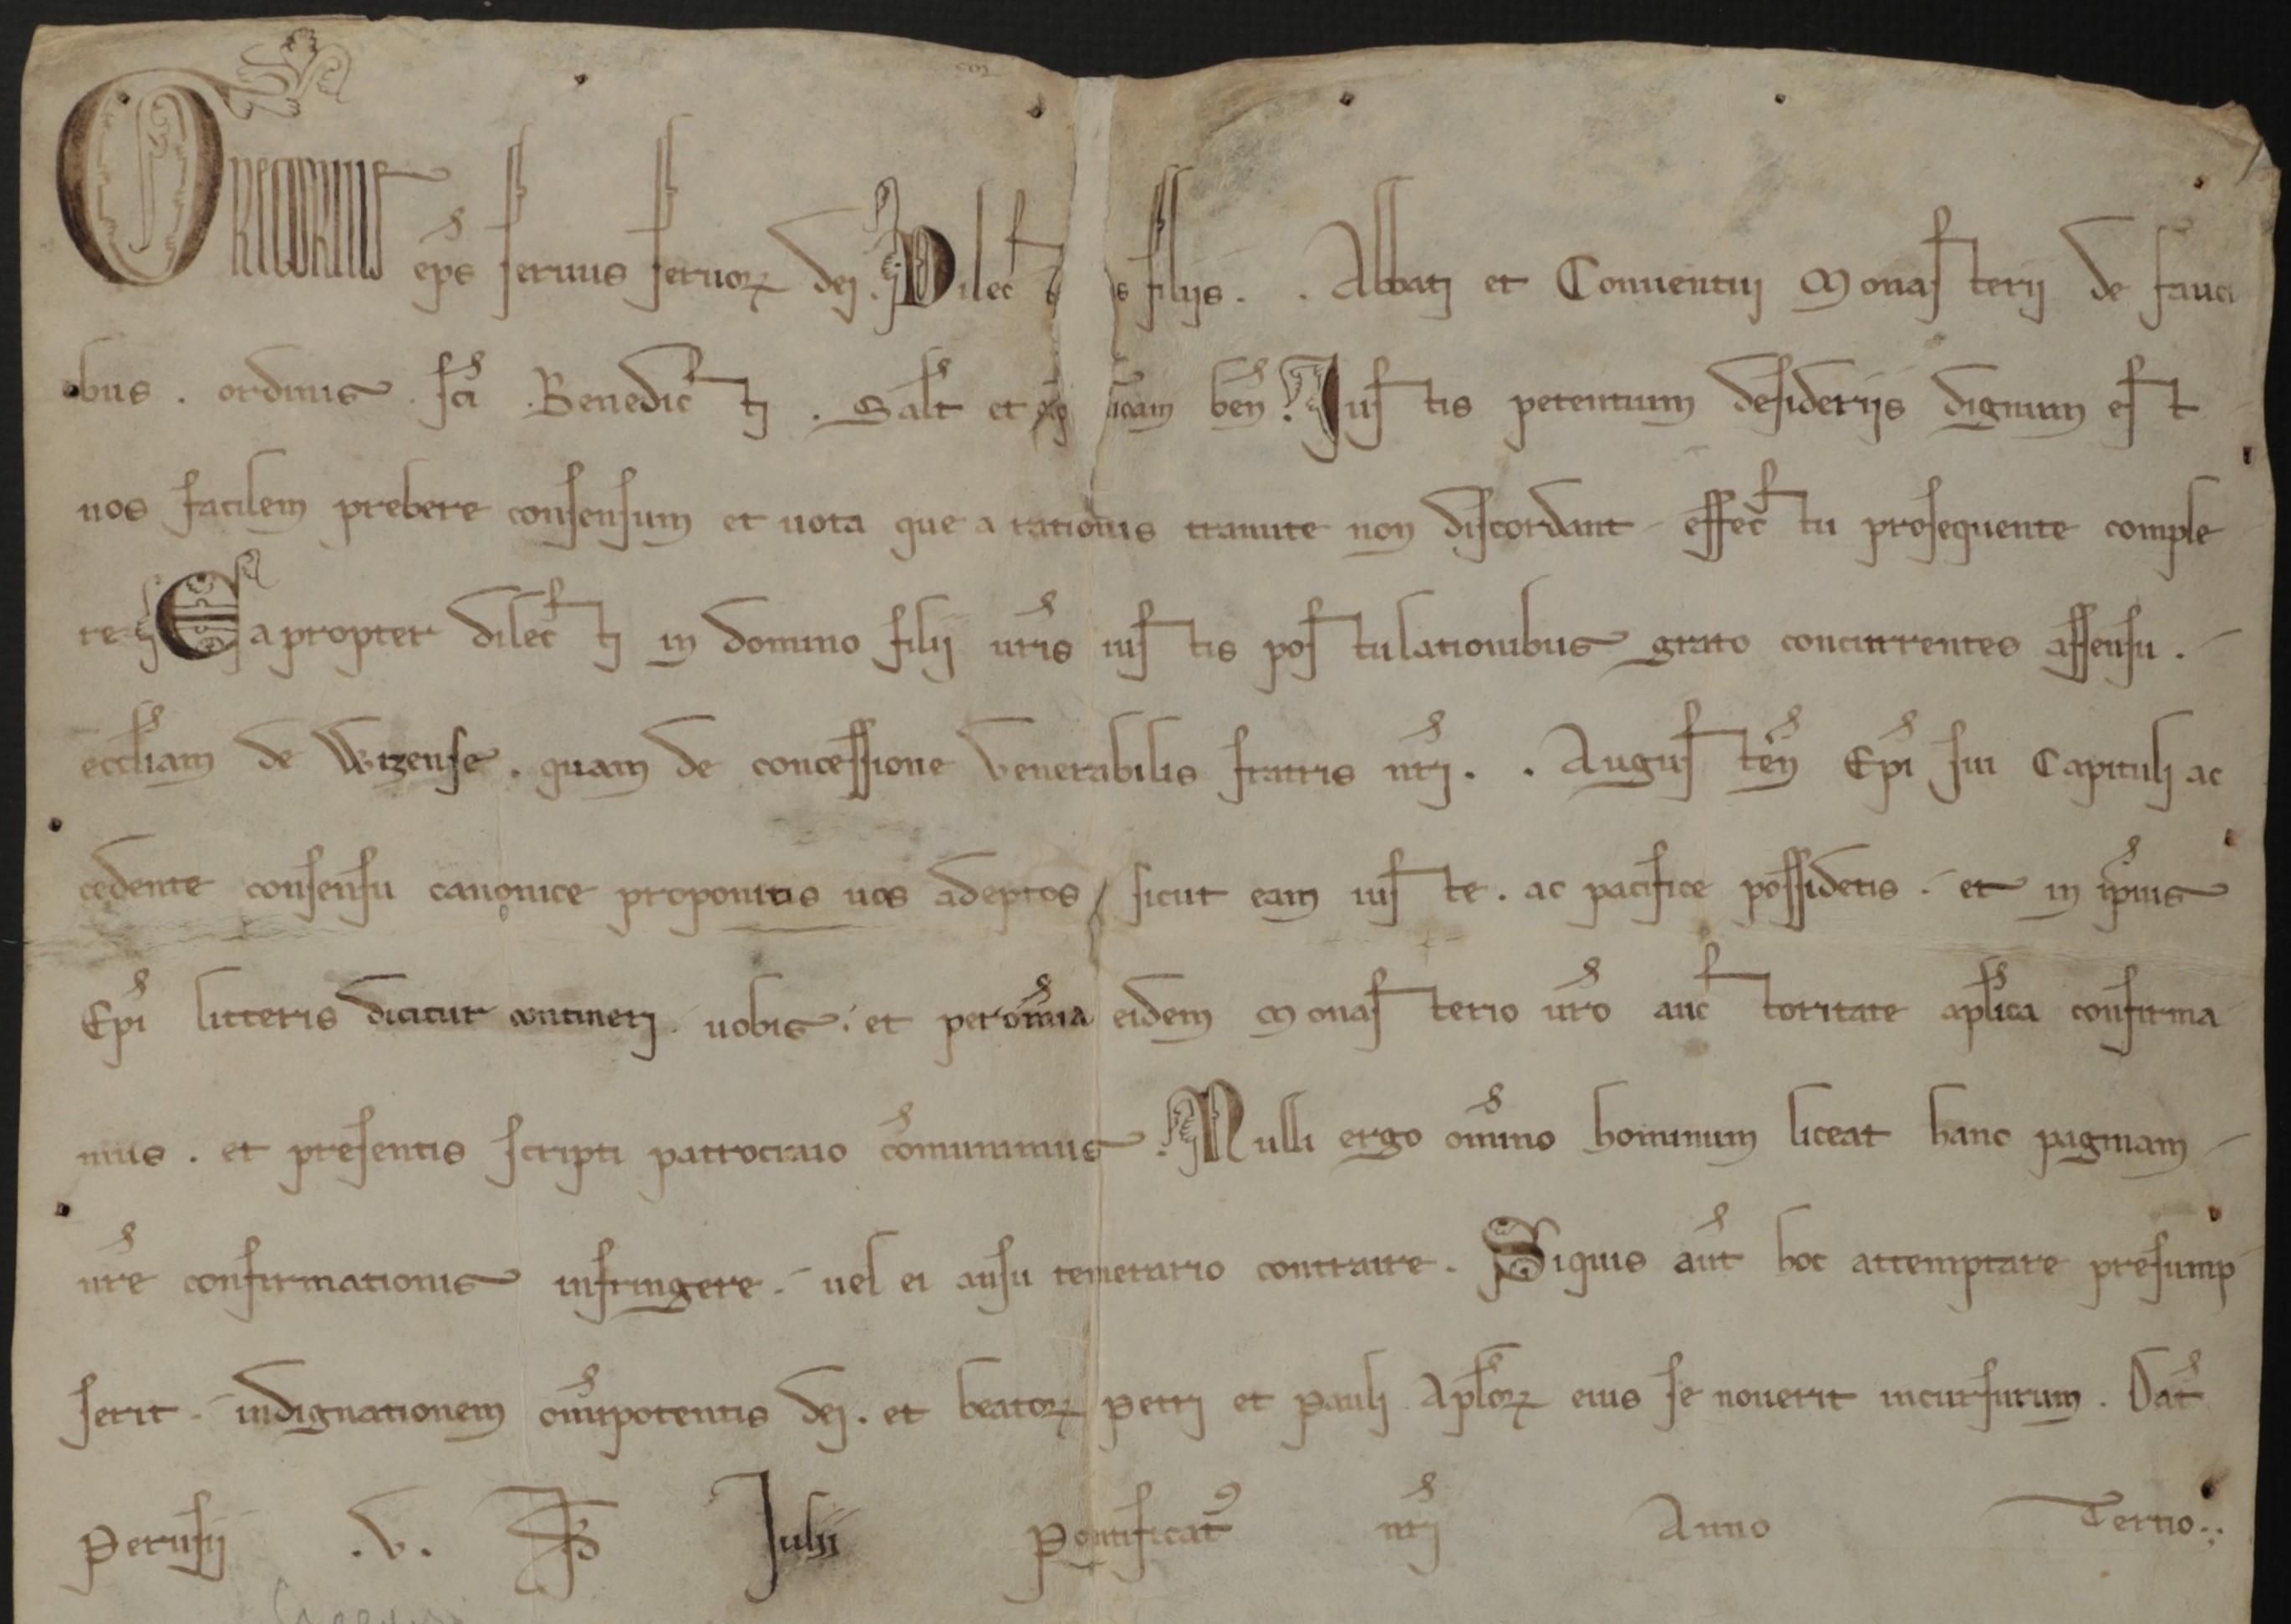 GREGORIUS ep̄s seruus seruoꝝ dei. Dilectis filiis. . Abbati et Conuentui Monasterii de fauci
bus. ordinis sc̄i Benedicti. Sal̄t et ap̄licam ben̄. Iustis petentium desideriis dignum est
nos facilem prebere consensum et uota que a rationis tramite non discordant effectu prosequente comple
re. Eapropter dilecti in domino filii ur̄is iustis postulationibus grato concurrentes assensu.
eccl̄iam de Wizense. quam de concessione Venerabilis fratris nr̄i. . Augusten̄ Ep̄i sui Capituli ac
cedente consensu canonice proponitis uos adeptos / sicut eam iuste. ac pacifice possidetis. et in ip̄ius
Ep̄i litteris dicitur contineri. uobis. et per om̄ia eidem Monasterio ur̄o auctoritate ap̄lica confirma
mus. et presentis scripti patrocinio com̄unimus. Nulli ergo om̄ino hominum liceat hanc paginam
nr̄e confirmationis infringere. uel ei ausu temerario contraire. Siquis aut̄ hoc attemptare presump
serit. indignationem om̄ipotentis dei. et beatoꝝ Petri et Pauli Ap̄loꝝ eius se nouerit incursurum. Dat̄
Perusii .V. Kl̄ Iulii Pontificatꝰ nr̄i Anno Tertio.